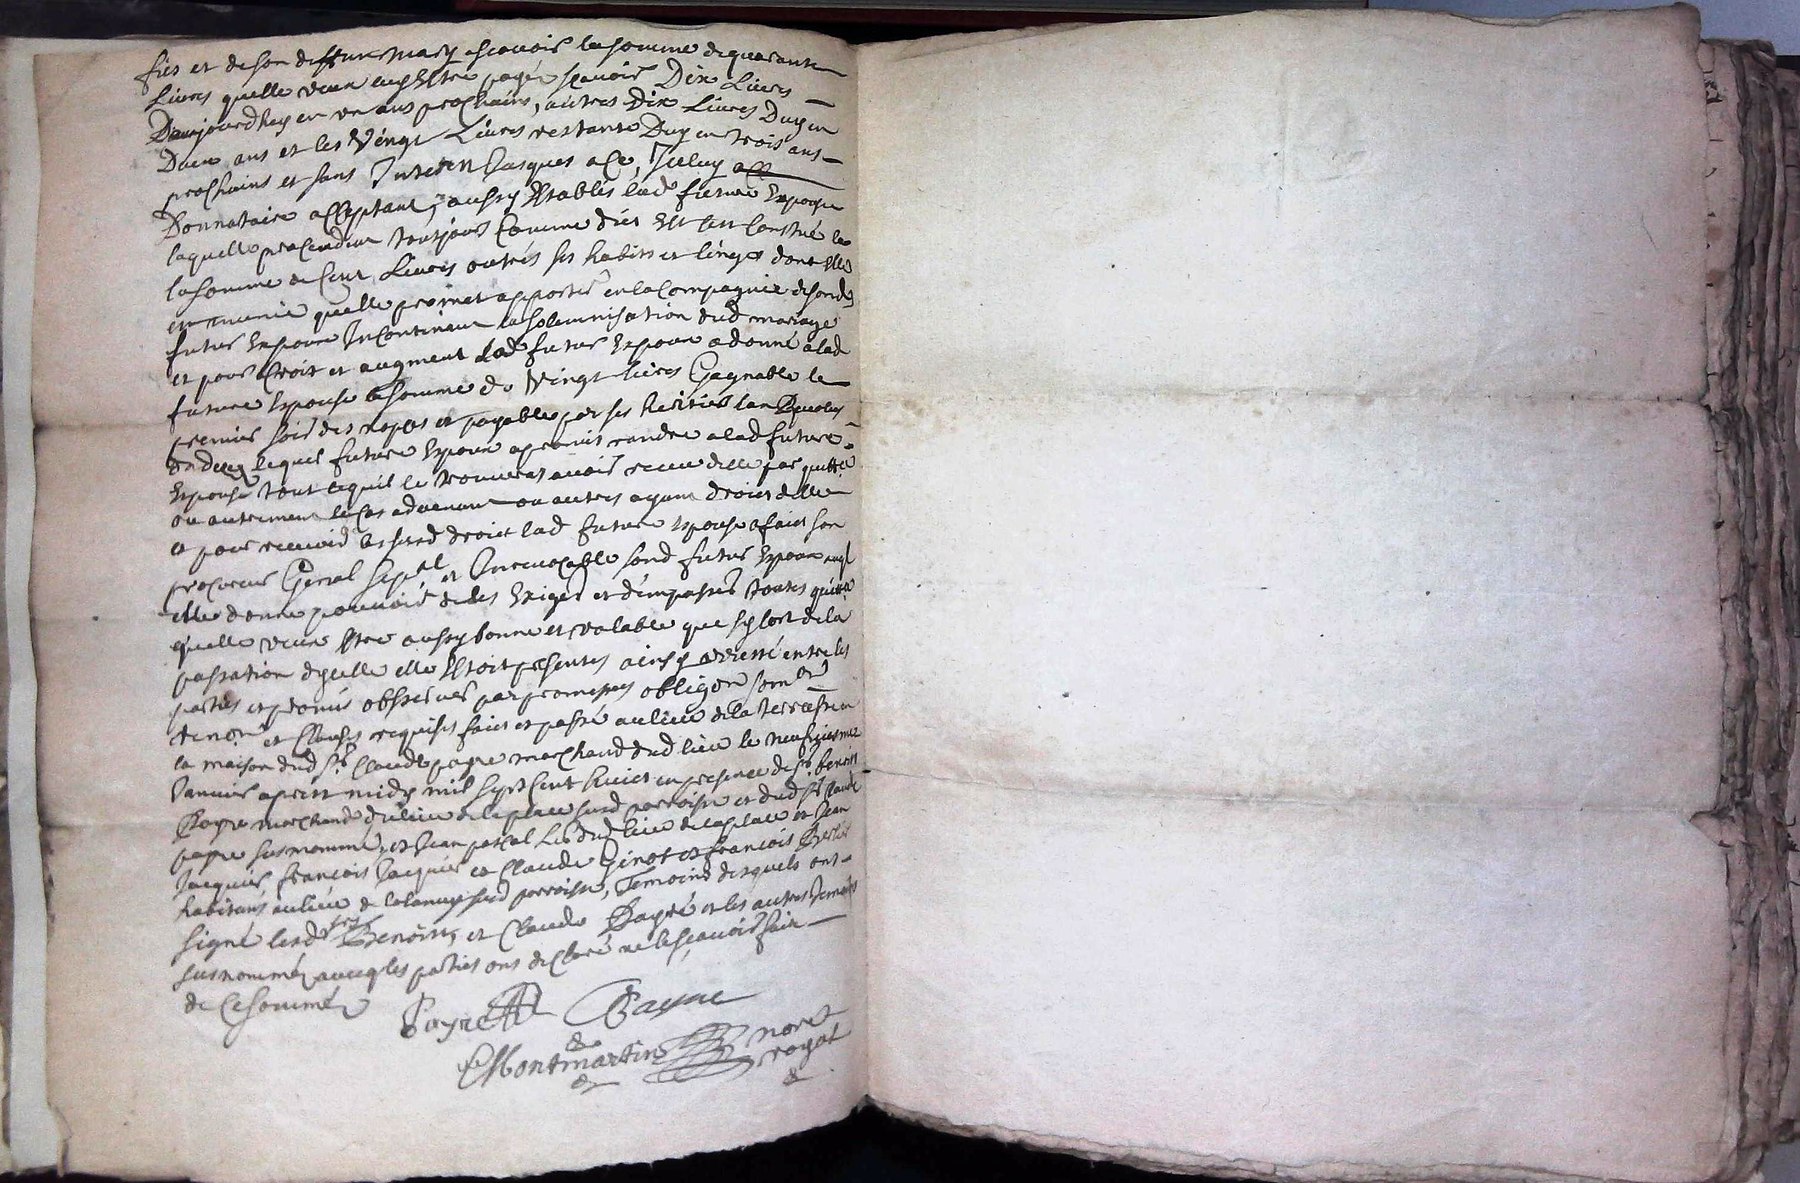 fils et de son deffunt mary scavoir la somme de quarante
Livres quelle veux luy estre payé scavoir Dix Livres
Daujourdhuy en un ans prochains, autres dix Livres Duy en
Deux ans et les Vingt Livres restante Duy en trois ans
prochains et sans Interest Jusques a ce, Iceluy
Donnataire acceptant, aussy establie lade future Espouse
laquelle procedant toutjours comme dict est sest constitué
la somme de Cent Livres outres ses habits et linges dont elle
est munie quelle promet apporter en la Compagnie de sond
futur Espoux Incontinant la solemnisation dud mariage
et pour droit et augment led futur Espoux a donné a lad
future Espouse la somme de Vingt livres Gagnable le
premier soir des nopces et payable par ses heritiers lan
lequel futur Espoux a promit randre a lad future
Espouse tout ce quil se trouveras avoir receu delle par quitte
ou autrement le cas advenant ou autres ayant droict delle
et pour recevoir les susd droict lad future Espouse a faict son
procureur General sepal et Irrevocable sond futur Espoux auql
elle donne pouvoir de les Exiger et d'en passer toutes quitte
quelle veux estre aussy bonne et valable que sy lors de la
passation dycelle elle Estoit presentes ainsy arresté entre les
parties et promis observer par promesses obligon
et clauses requises faict et passé au lieu de la Terrasse en
la maison dud sr Claude payre marchand dud lieu le neufiesme
Janvier apres midy mil sept cent huict en presence de sr benoist
Payre marchand du lieu de la place susd parroisse et dud sr Claude
payre susnommé, et Jean pascal dud lieu de la place et Jean
Jacquier francois Jacquier et Claude Ginot et francois
habitans au lieu de susd parroisse, Temoins desquels ont
signé lesd srs Benoist, et Claude Payre et les autres temoins
susnommés avecq les parties ont declaré ne le scavoir faire
de ce sommés
Payre Payre
Montmartin
noret
royal